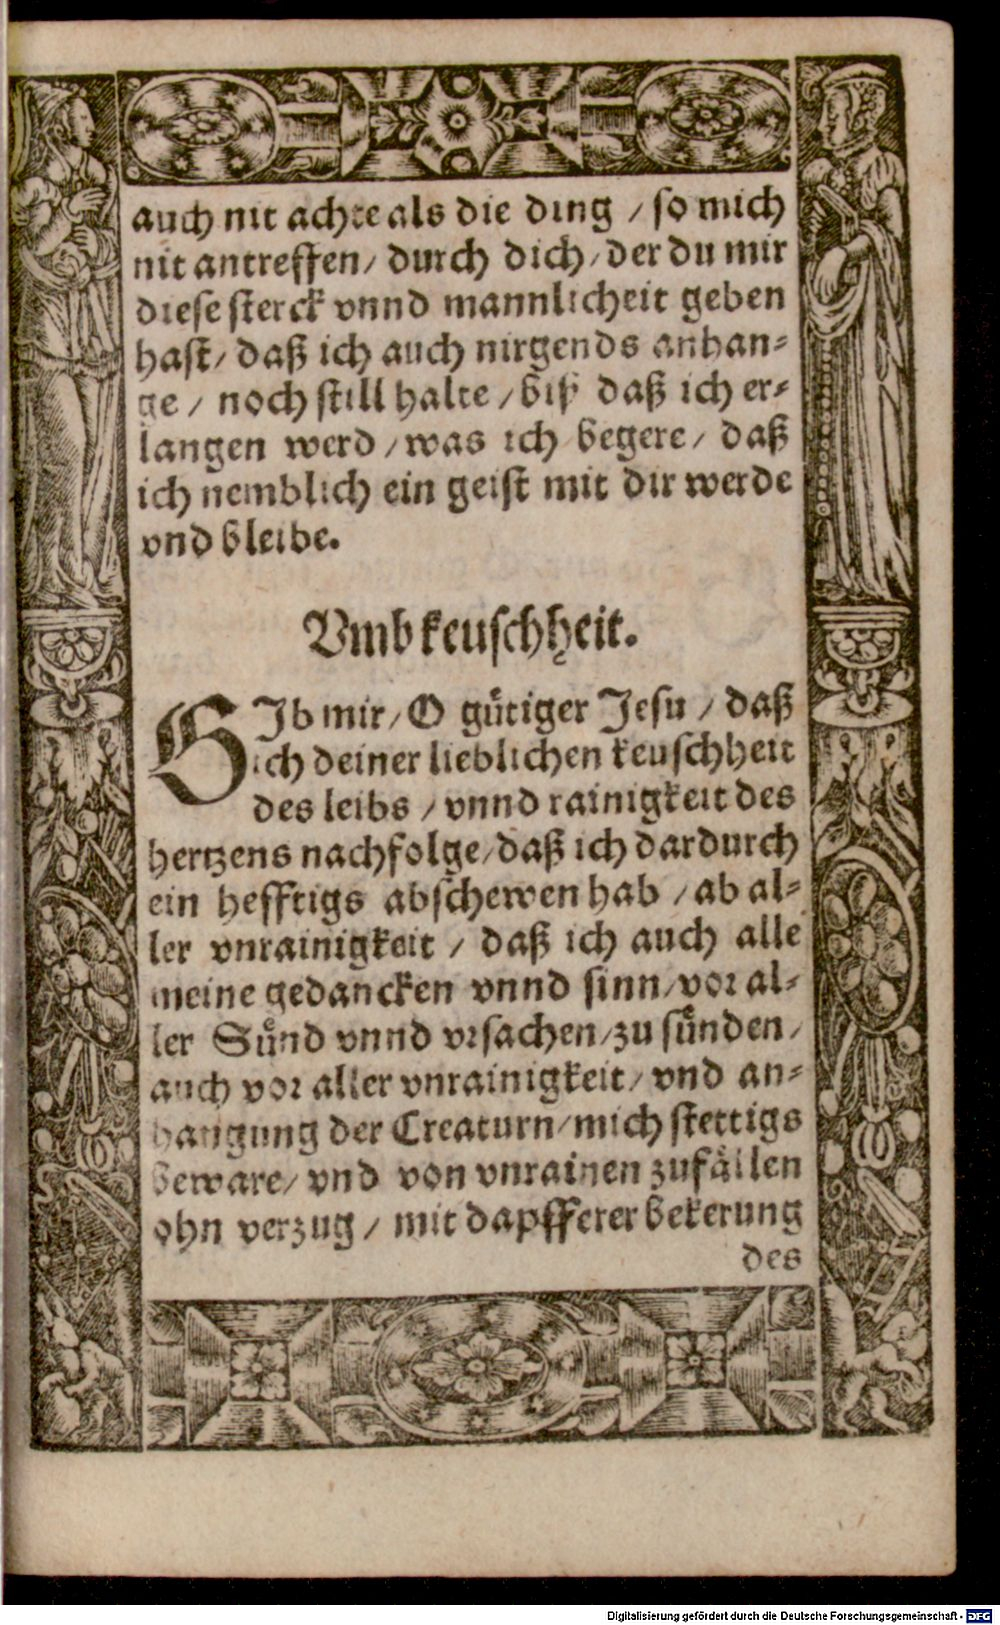 auch nit achte als die ding / so mich
nit antreffen / durch dich / der du mir
diese sterck vnnd mannlicheit geben
hast / daß ich auch nirgends anhan-
ge / noch still halte / biß daß ich er-
langen werd / was ich begere / daß
ich nemblich ein geist mit dir werde
vnd bleibe.
Vmb keuschheit.
GIb mir / O gütiger Jesu / daß
ich deiner lieblichen keuschheit
des leibs / vnnd rainigkeit des
hertzens nachfolge / daß ich dardurch
ein hefftigs abschewen hab / ab al-
ler vnrainigkeit / daß ich auch alle
meine gedancken vnnd sinn / vor al-
ler Sünd vnnd vrsachen / zu sünden /
auch vor aller vnrainigkeit / vnd an-
hangung der Creaturn / mich stettigs
beware / vnd von vnrainen zufällen
ohn verzug / mit dapfferer bekerung
des
Digitalisierung gefördert durch die Deutsche Forschungsgemeinschaft - DFG